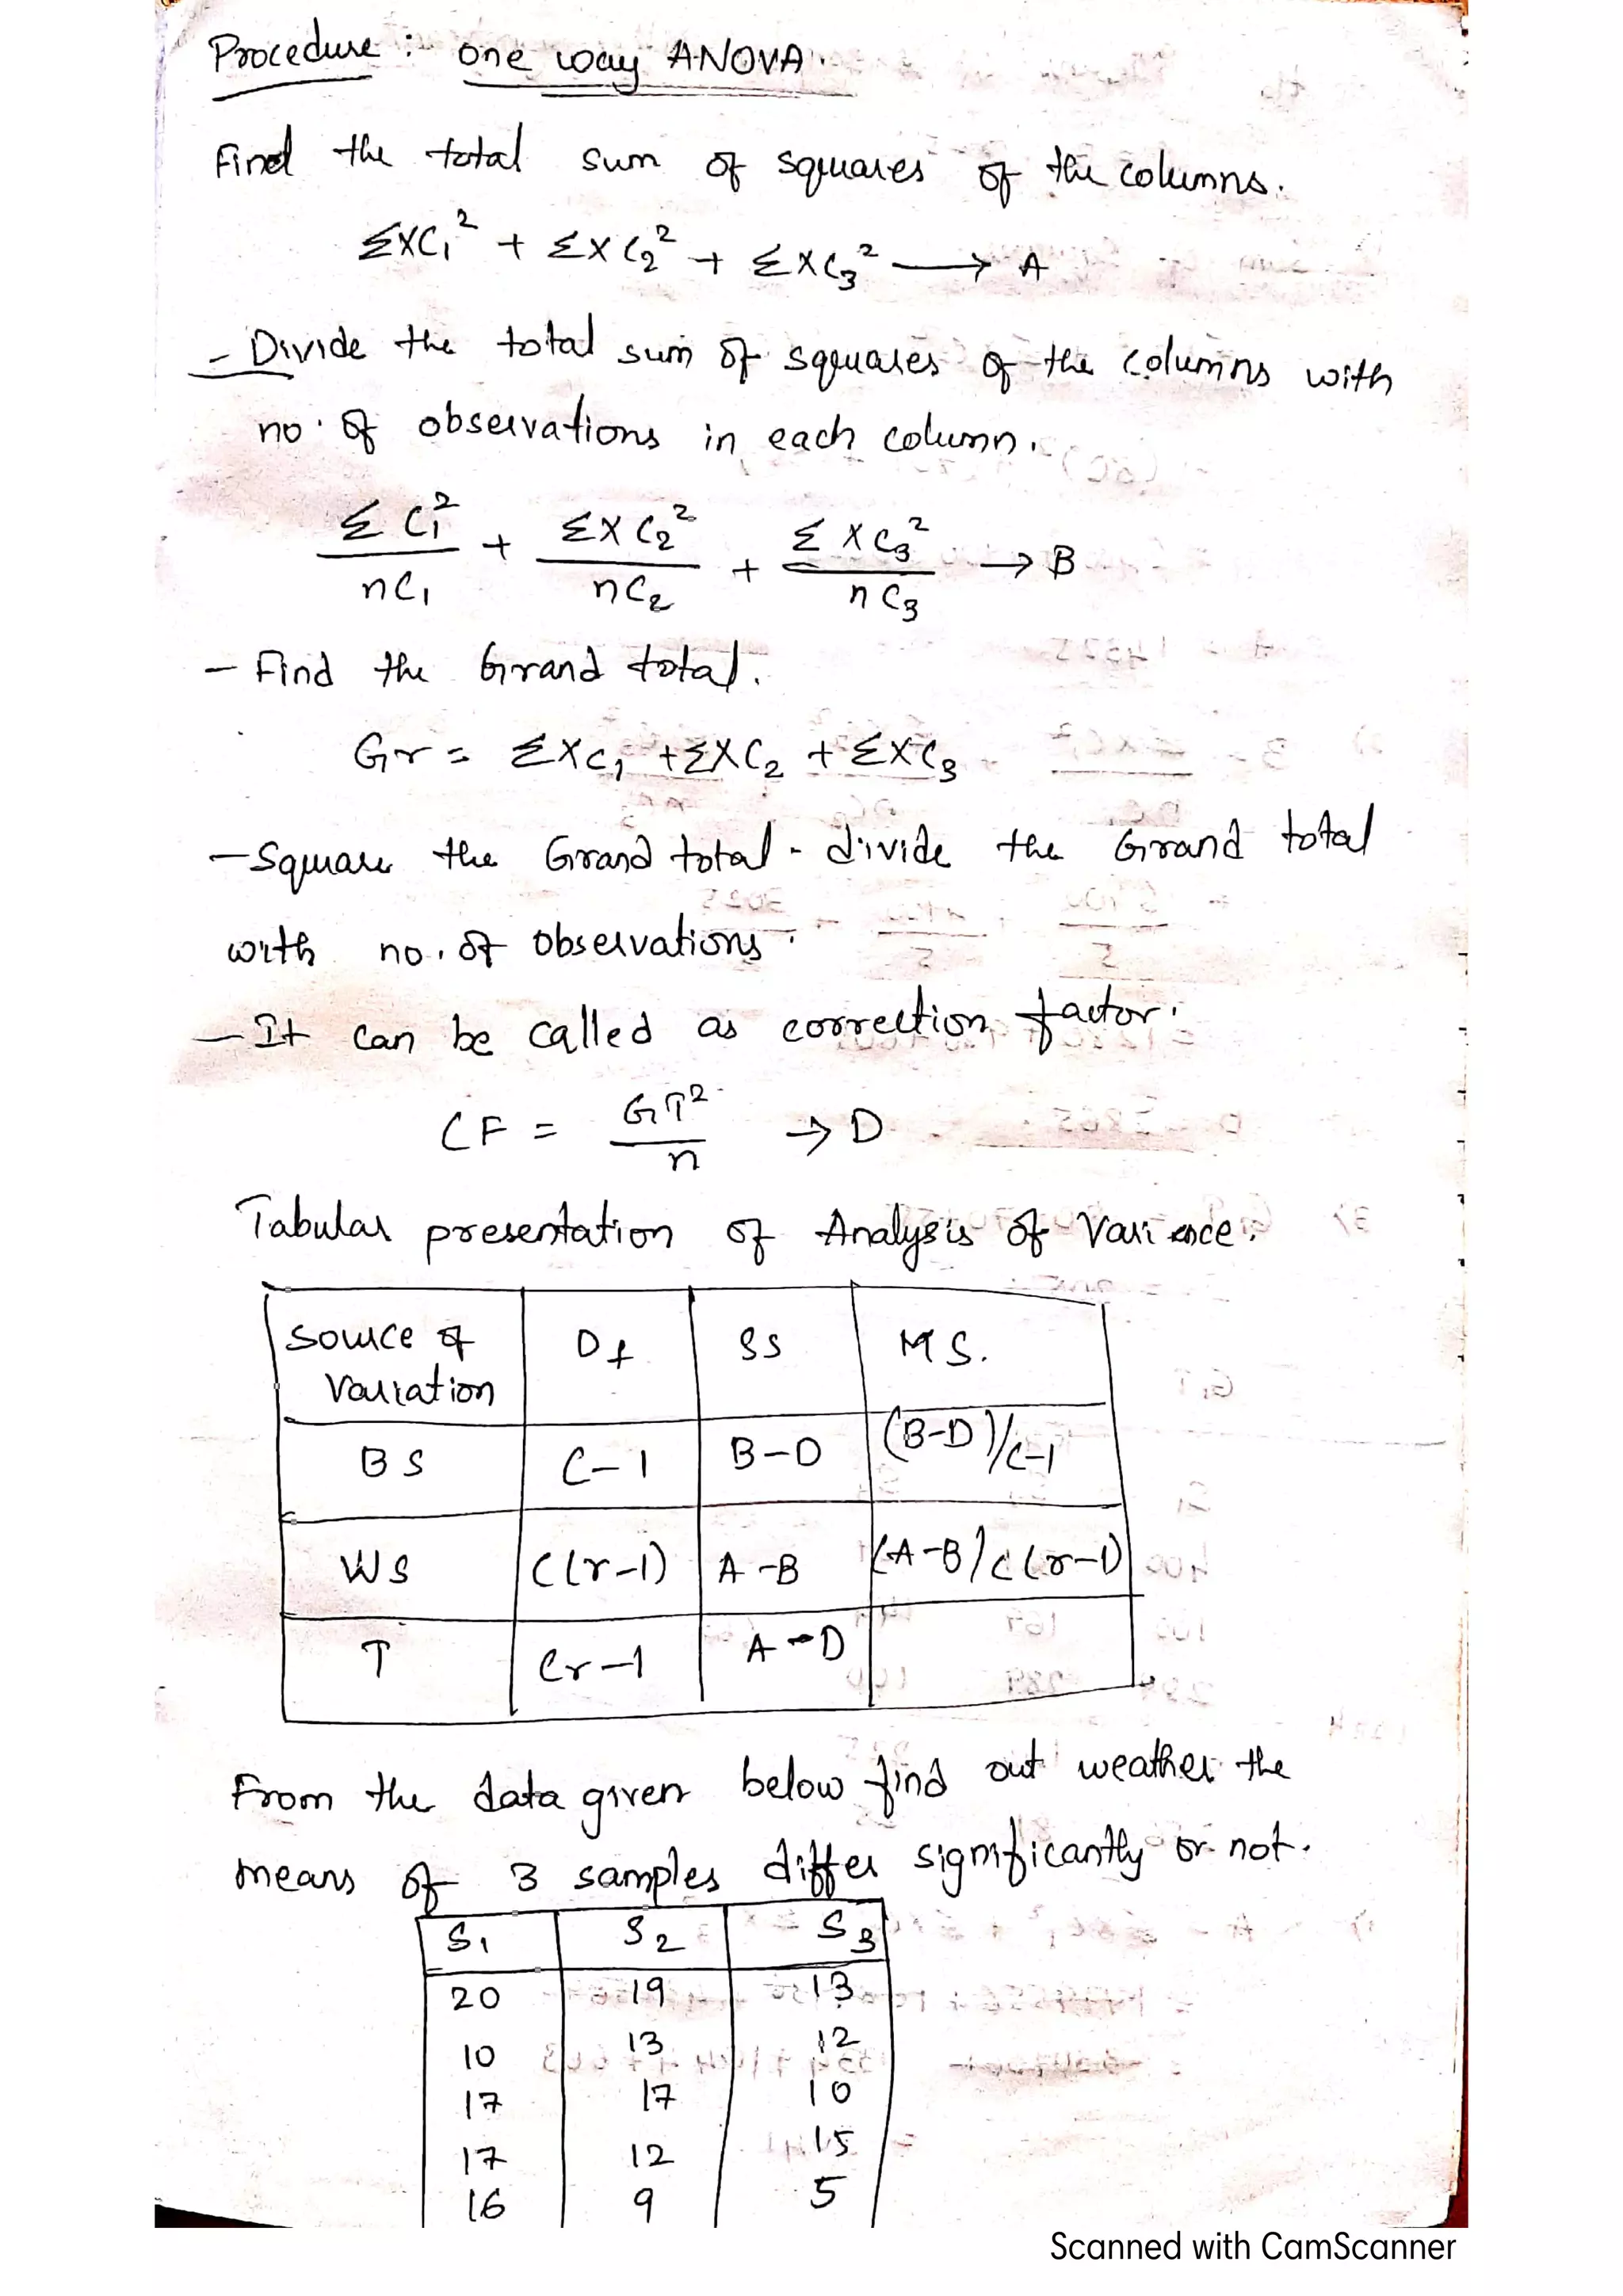 Procedure : one way ANOVA.
Find the total sum of squares of the columns.
ΣXC₁² + ΣXC₂² + ΣXC₃² → A
- Divide the total sum of squares of the columns with
no. of observations in each column.
ΣC₁²/nC₁ + ΣXC₂²/nC₂ + ΣXC₃²/nC₃ → B
- Find the Grand total.
Gr = ΣXC₁ + ΣXC₂ + ΣXC₃
- Square the Grand total - divide the Grand total
with no. of observations.
- It can be called as correction factor.
CF = GT²/n → D
Tabular presentation of Analysis of Varience.
Source of Variation | Df | SS | MS.
BS | C-1 | B-D | (B-D)/C-1
WS | C(r-1) | A-B | (A-B/C(r-1)
T | Cr-1 | A-D
From the data given below find out weather the
means of 3 samples differ significantly or not.
S₁ S₂ S₃
20 19 13
10 13 12
17 17 10
17 12 15
16 9 5
Scanned with CamScanner